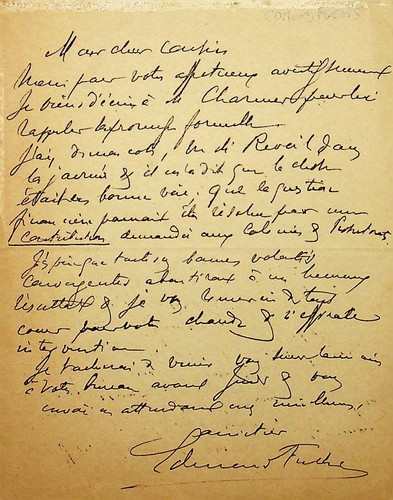 Mon cher Cousin
Merci pour votre affectueux avertissement
Je viens d'écrire à M. Charmes pour lui
rappeler sa promesse formelle
J'ai, de mon côté, vu M. Reveil dans
la journée & il m'a dit que la chose
était en bonne voie, que la question
financière pourrait être résolue par une
contribution demandée aux Colonies &
J'espère que toutes ces bonnes volontés
convergentes aboutiront à un heureux
résultat & je vous remercie de tout
cœur pour votre chaude &
intervention.
Je tâcherai de venir vous
à votre bureau avant & vous
envoie en attendant mes meilleures
Edmond Fuchs